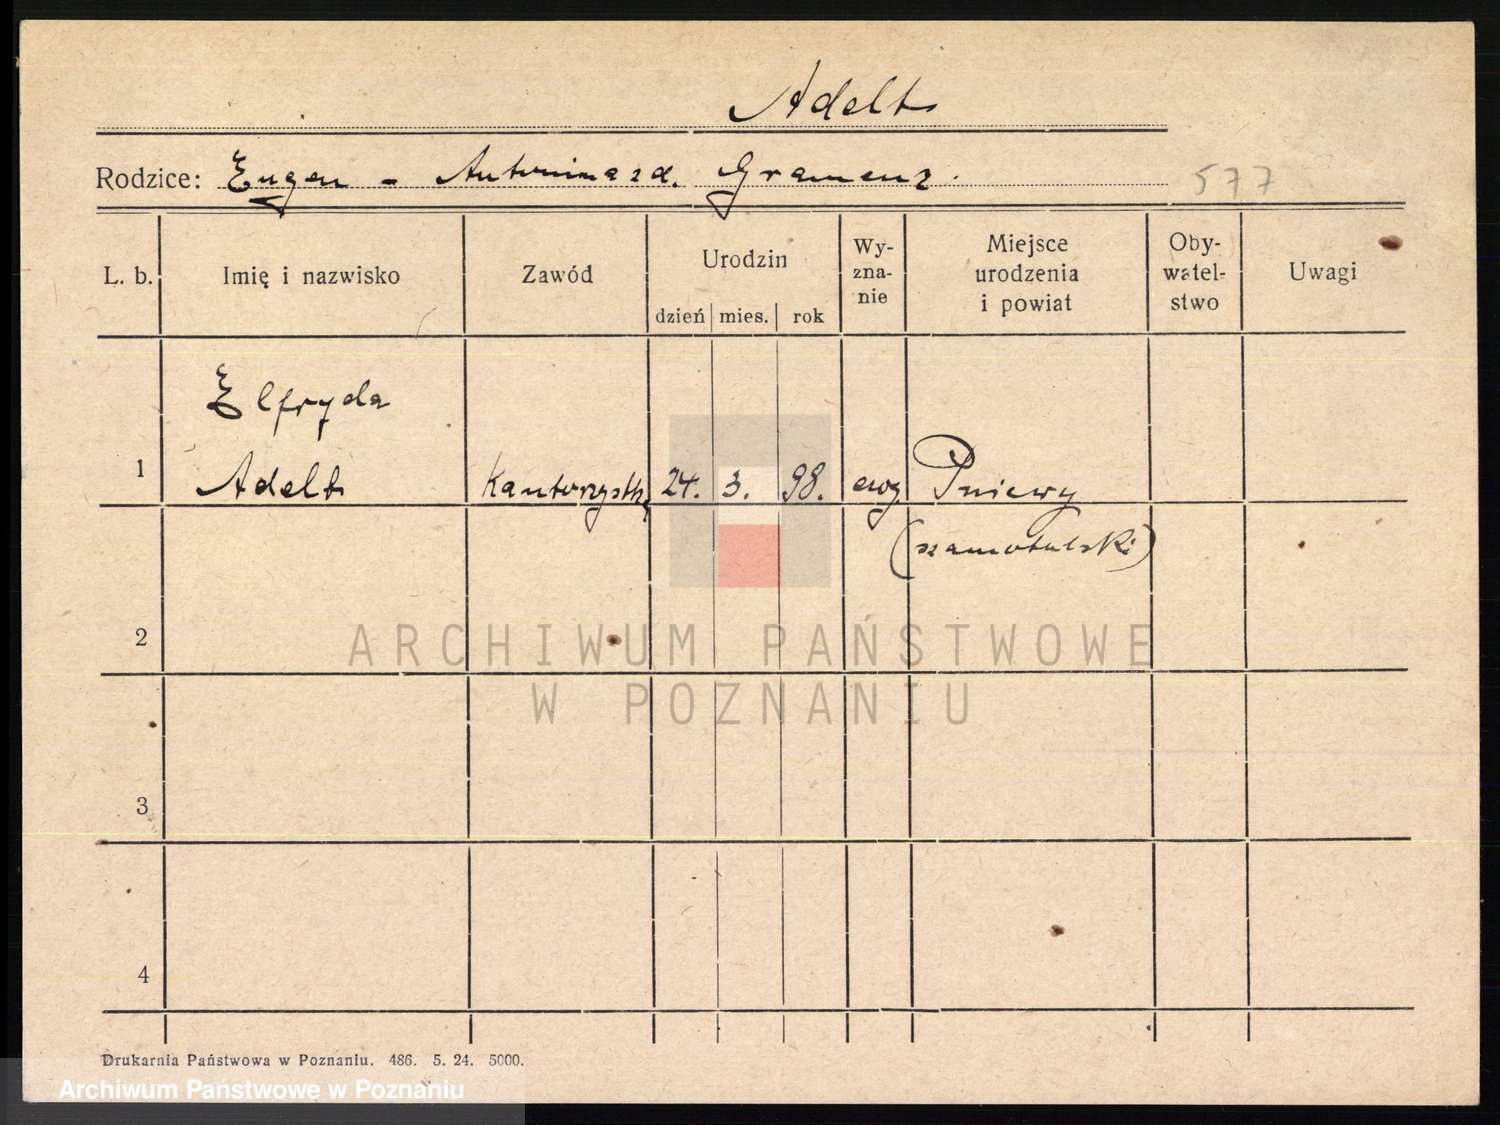 Adelt
Rodzice: Eugen - Antonina zd. Gramenz.
577
L. b.
Imię i nazwisko
Zawód
Urodzin
dzień mies. rok
Wy-
zna-
nie
Miejsce
urodzenia
i powiat
Oby-
watel-
stwo
Uwagi
Elfryda
1 Adelt kantorzystka 24. 3. 98. ewg Pniewy
(szamotulski)
2
ARCHIWUM PAŃSTWOWE
W POZNANIU
3
4
Drukarnia Państwowa w Poznaniu. 486. 5. 24. 5000.
Archiwum Państwowe w Poznaniu